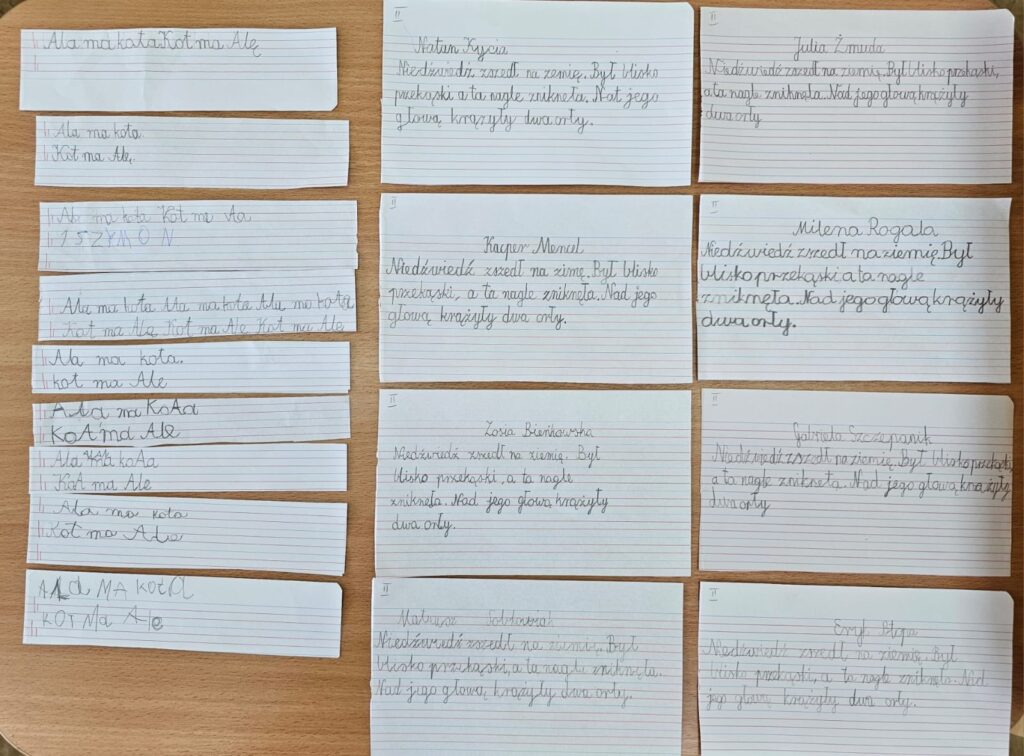 Ala ma kota Kot ma Alę
Ala ma kota.
Kot ma Alę.
Ala ma kota Kot ma Aa
1 SZYMON
Ala ma kota Ala ma kota Ala ma kota
Kot ma Alą Kot ma Alę Kot ma Alę
Ala ma kota.
kot ma Alę
Ala ma KoAa
KoA ma Alę
Ala ma koAa
KoA ma Ale
Ala ma kota
Kot ma Ale
ALa MA KotA
KOT Ma Ale
II
Natan Kycia
Niedźwiedź zszedł na zemię. Był blisko
przekąski a ta nagle zniknęła. Nat jego
głową krążyły dwa orły.
II
Kacper Mencel
Niedźwiedź zszedł na zimę. Był blisko
przekąski, a ta nagle zniknęła. Nad jego
głową krążyły dwa orły.
II
Zosia Bieńkowska
Niedźwiedź zszedł na ziemię. Był
blisko przekąski, a ta nagle
zniknęła. Nad jego głową krążyły
dwa orły.
II
Mateusz
Niedźwiedź zszedł na ziemię. Był
blisko przekąski, a ta nagle zniknęła.
Nad jego głową krążyły dwa orły.
II
Julia Żmuda
Niedźwiedź zszedł na ziemię. Był blisko przekąski,
a ta nagle zniknęła. Nad jego głową krążyły
dwa orły
II
Milena Rogala
Niedźwiedź zszedł na ziemię. Był
blisko przekąski a ta nagle
zniknęła. Nad jego głową krążyły
dwa orły.
II
Gabriela Szczepanik
Niedźwiedź zszedł na ziemię. Był blisko przekąski,
a ta nagle zniknęła. Nad jego głową krążyły
dwa orły
II
Eryk
Niedźwiedź zszedł na ziemię. Był
blisko przekąski, a ta nagle zniknęła. Nad
jego głową krążyły dwa orły.